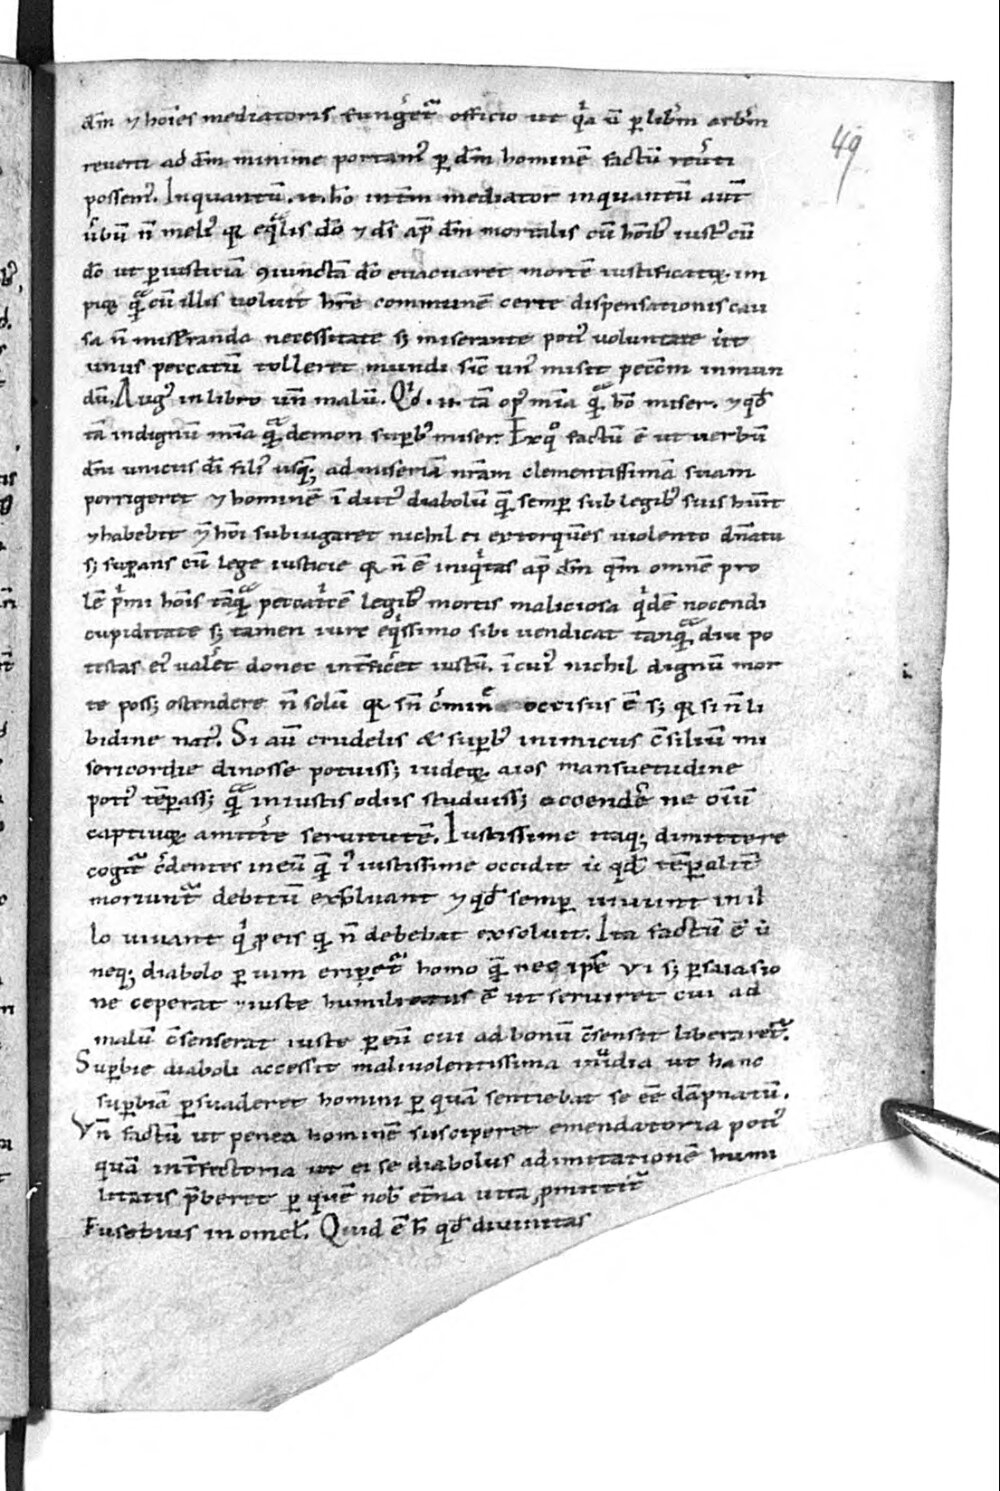 49
dm̄ ⁊ hoīes mediatoris fungeret᷑ officio ut q̇a ū ꝑ libm̄ arbm̄
reverti ad dm̄ minime poteram᷒ ꝑ dm̄ hominē factū reu̇ti
possem᷒. Inquantū .n. hō intm̄ mediator inquantū aut̄
u̇bū n̄ medi᷒ qꝛ eq̄lis dō ⁊ ds̄ ap̄ dm̄ mortalis cū hōīb᷒ iust᷒ cū
dō ut ꝑ iusticiā ꝯiunctā dō euacuaret mortē iustificatoꝝ im
pioꝝ quā cū illis uoluit hr̄e communē certe dispensationis cau
sa n̄ miseranda necessitate sꝫ miserante poti᷒ uoluntate ut
unus peccatū tolleret mundi sic̄ un᷒ misit pecc̄m in mun
dū. Aug᷒ in libro un̄ malū. Qd̓ .n. tā op᷒ mīa quā hō miser. ⁊ qd̄
tā indignū mīa quā demon suꝑb᷒ miser. Exq̊ factū ē ut verbū
dm̄ unicus dī fili᷒ usqꝫ ad miseriā nr̄am clementissimā suam
porrigeret ⁊ hominē īdut᷒ diabolū quē semꝑ sub legib᷒ suis huīt
⁊ habebit ⁊ hōī subiugaret nichil ei extorquēs uiolento dn̄atu
sꝫ suꝑans eū lege iusticie qꝛ n̄ ē iniq̇tas ap̄ dm̄ qm̄ omnē pro
lē p̓mi hoīs tāquā peccat̓cē legib᷒ mortis maliciosa q̇dē nocendi
cupiditate sꝫ tamen iure eq̇ssimo sibi vendicat tanquā diu po
testas ei᷒ ualet donec int̄ficeret iustū. ī cui᷒ nichil dignū mor
te possꝫ ostendere n̄ solū qꝛ sn̄ c̓mine occisus ē sꝫ qꝛ si n̄ li
bidine nat᷒. Si aū crudelis & suꝑb᷒ inimicus ꝯsiliū mi
sericordie dinosse potuissꝫ iudeoꝝ aīos mansuetudine
poti᷒ tēꝑassꝫ quā iniustis odiis studuissꝫ accendere ne oīū
captiuoꝝ amitt̓e seruitutē. Iustissime itaqꝫ dimittere
cogit᷑ c̓dentes in eū quē iniustissime occidit ut qd̄ tēꝑalit̄
moriunt᷑ debitū exsoluant ⁊ qd̄ semꝑ uiuunt in il
lo uiuant q̇ ꝓ eis q̄ n̄ debebat exsoluit. Ita factū ē ut
neqꝫ diabolo ꝑ uim eriꝑet᷑ homo quē nec ipse vi sꝫ ꝑsuasio
ne ceperat ⁊ iuste humiliatus ē ut seruiret cui ad
malū ꝯsenserat iuste ꝑ eū cui ad bonū ꝯsensit liberaret᷑.
Suꝑbie diaboli accessit maliuolentissima inuidia ut hanc
suꝑbiā ꝑsuaderet homini ꝑ quā sentiebat se eē dāpnatū.
Vn̄ factū ut penea hominē susciperet emendatoria poti᷒
quā int̄fectoria ut ei se diabolus ad imitationē humi
litatis p̄beret ꝑ quē nob̄ et̄na uita ꝓmittit᷑
Eusebius in omel̄. Quid ē h̄ qd̄ diuinitas